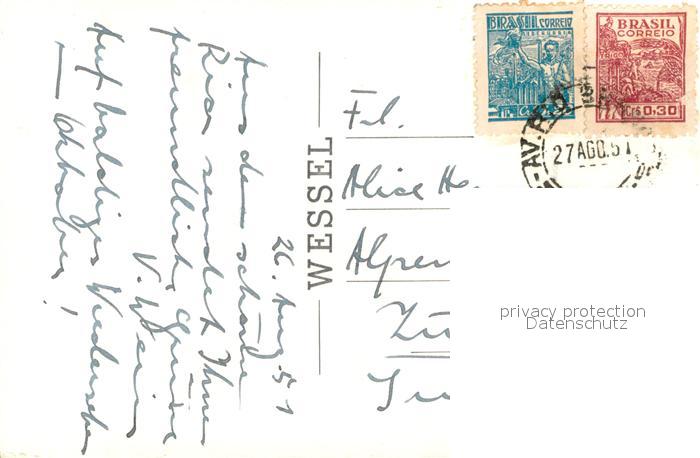 26. Aug. 51
Aus dem schönen
Rio sendet Ihnen
freundliche Grüsse
V. Wein
Auf baldiges Wiedersehen
— Oktober!
WESSEL
Frl.
Alice He
Alpen
Zü
BRASIL CORREIO
SIDERURGIA
BRASIL
CORREIO
0,30
27 AGO. 51
privacy protection
Datenschutz